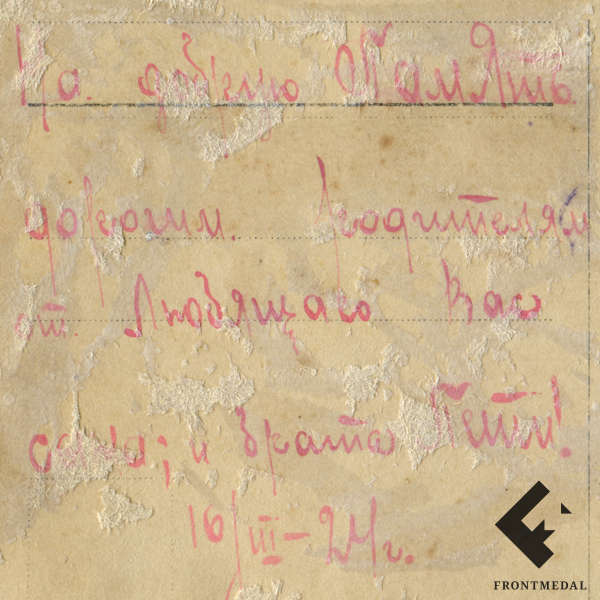 На добрую Память
дорогим. родителям
от. Любящаго Вас
сына; и брата Пети!
16/III – 24/г.
FRONTMEDAL